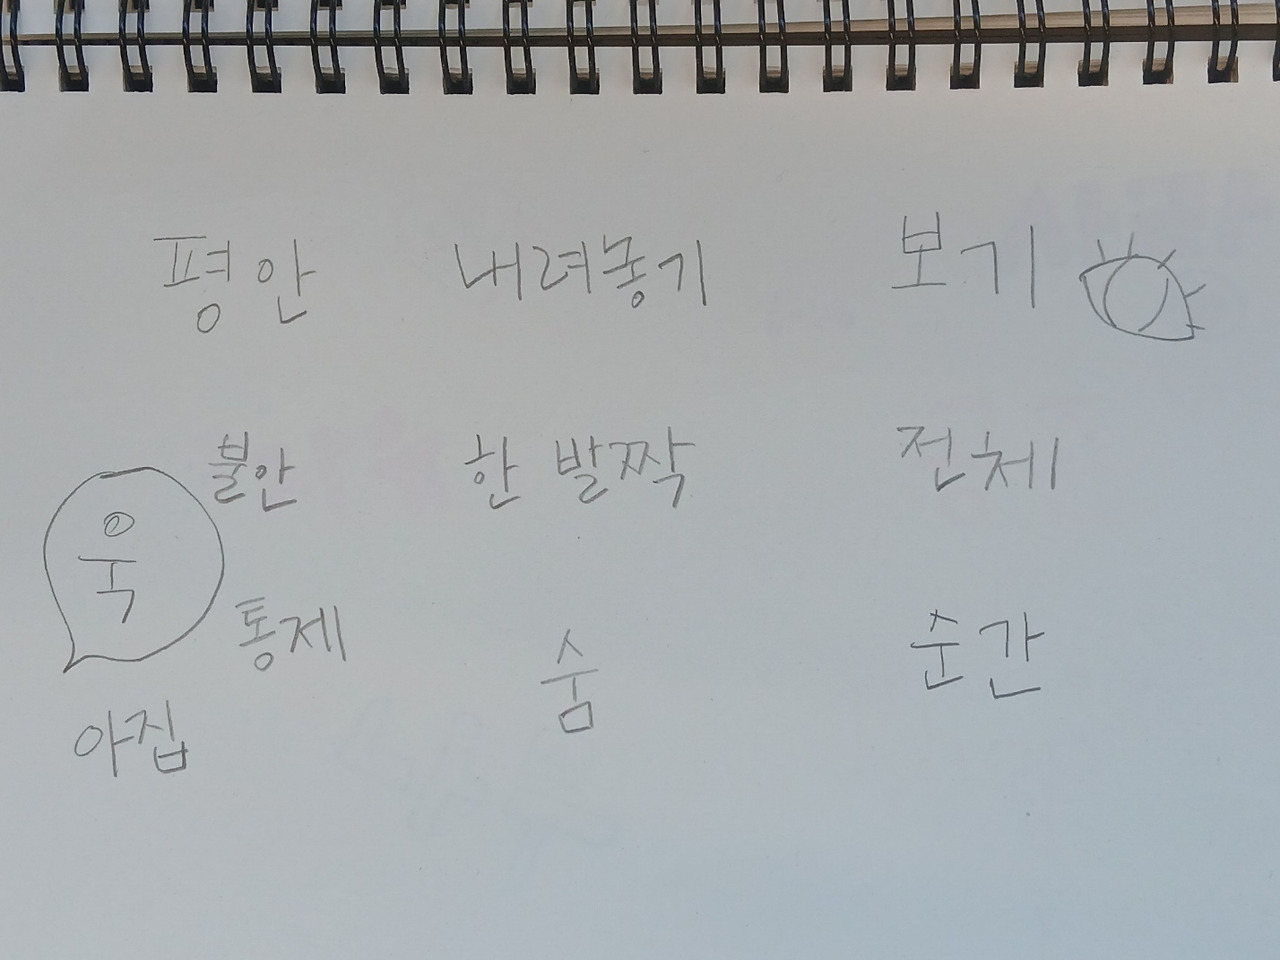 평안 내려놓기 보기
불안 한 발짝 전체
욱
통제 숨 순간
아집